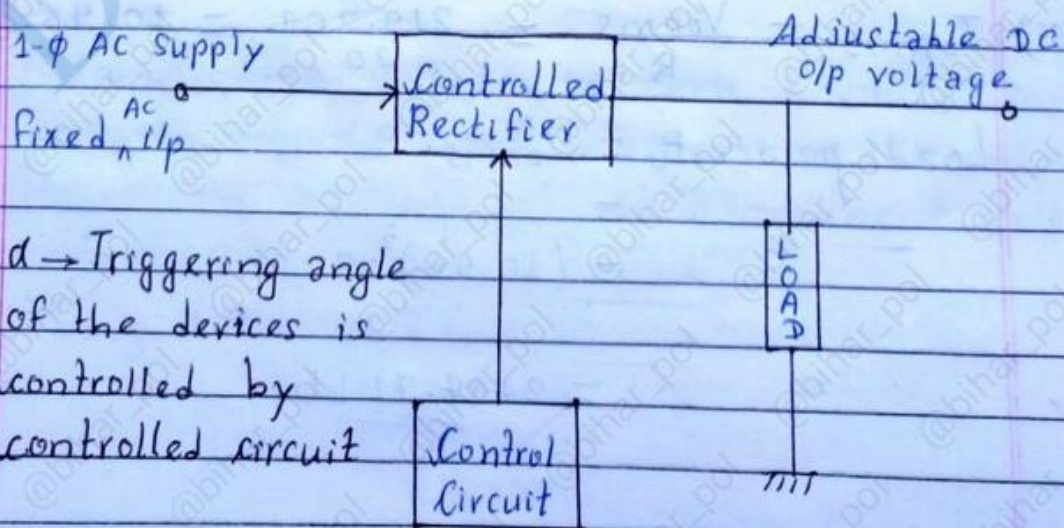 1-ϕ AC Supply
AC
fixed ^ i/p
Controlled
Rectifier
Adjustable DC
o/p voltage
α → Triggering angle
of the devices is
controlled by
controlled circuit
LOAD
Control
Circuit
@bihar_pol